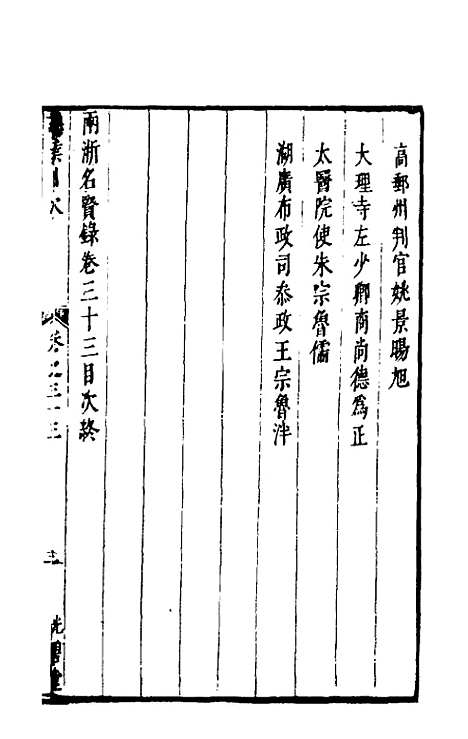 高郵州判官姚景暘旭
大理寺左少卿商尚德為正
太醫院使朱宗魯儒
湖廣布政司叅政王宗魯泮
兩浙名賢錄卷三十三目次終
卷之三十三
三